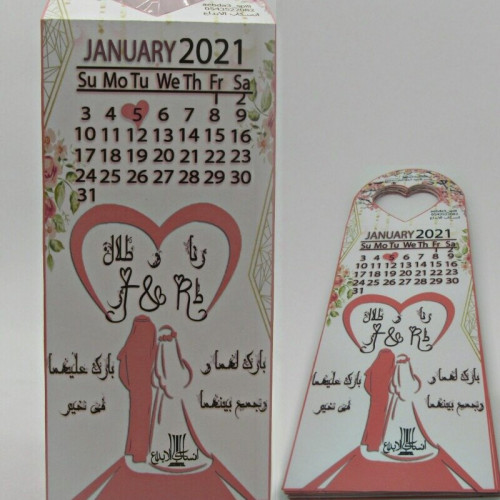 JANUARY 2021
Su Mo Tu We Th Fr Sa
1 2
3 4 5 6 7 8 9
10 11 12 13 14 15 16
17 18 19 20 21 22 23
24 25 26 27 28 29 30
31
و طلال
& R
بارك لهما و بارك عليهما
وجمع بينهما في خير
JANUARY 2021
Su Mo Tu We Th Fr Sa
1 2
3 4 5 6 7 8 9
10 11 12 13 14 15 16
17 18 19 20 21 22 23
24 25 26 27 28 29 30
31
و طلال
& R
بارك لهما و بارك عليهما
وجمع بينهما في خير